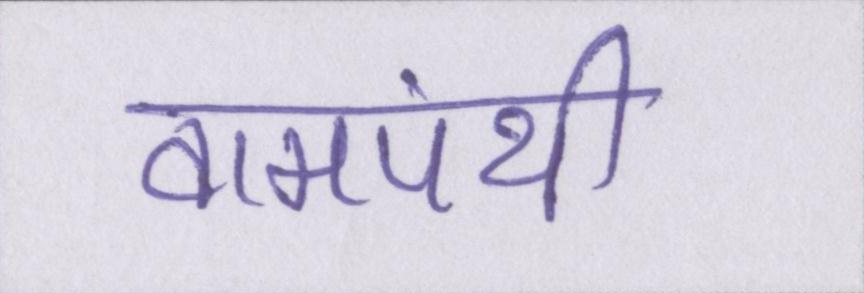 वामपंथी